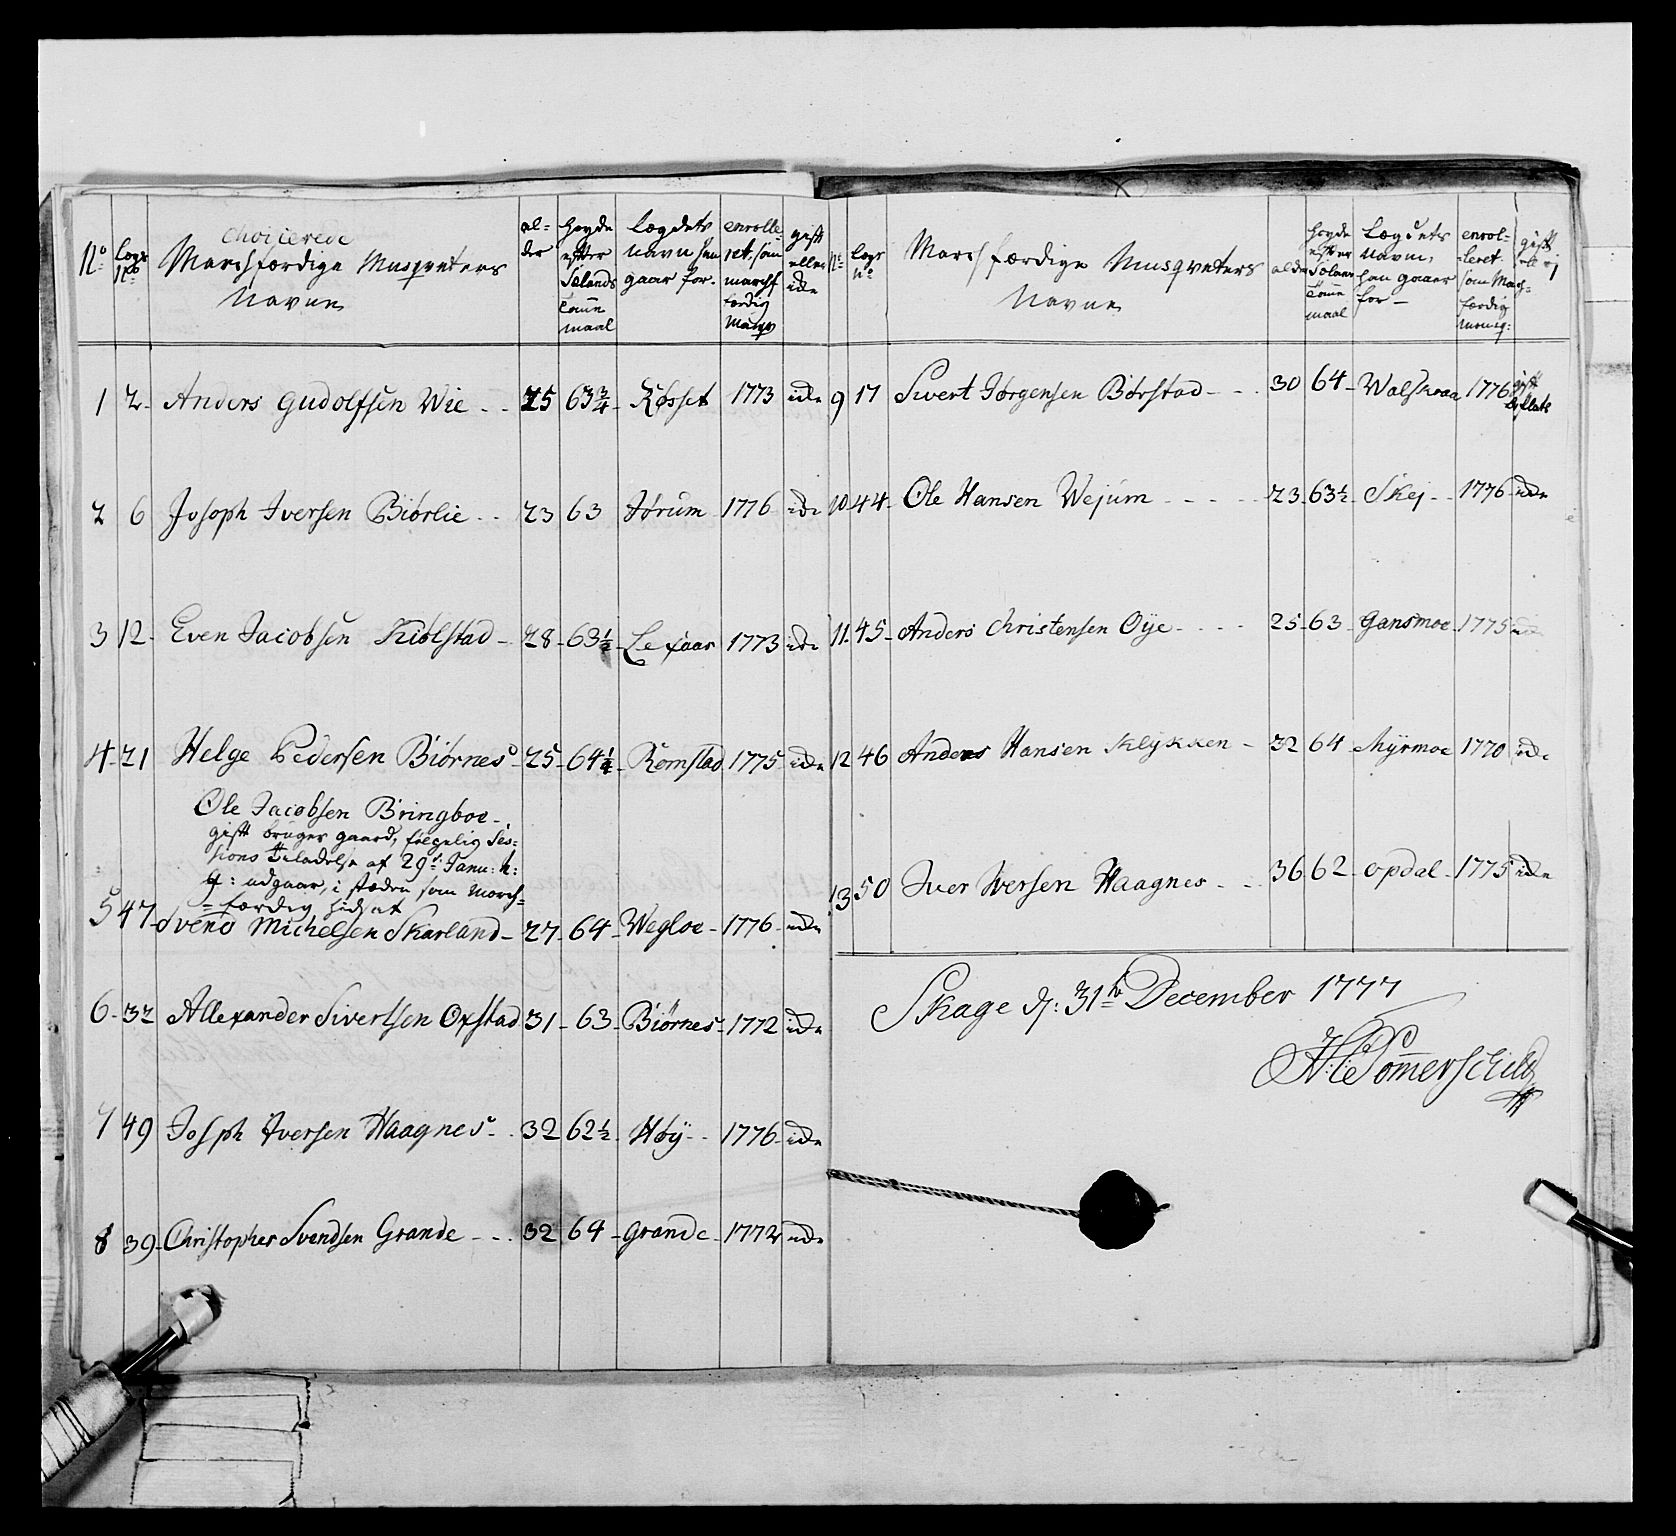 No
Lægs No
Choisierede
Marschfærdige Musqveters
Navne
al=
der
høyde
efter
Sælands
Tomme
maal
Lægdets
navn han
gaar for.
enrolle=
ret som
marschf
færdig
Musqv
gift
eller
icke
1 2 Anders Gudolfsen Wie - - 25 63 3/4 Røsset 1773 icke
2 6 Joseph Iversen Biørlie - - 23 63 Jørum 1776 icke
3 12 Even Jacobsen Kiølstad - 28 63 1/2 Lexaas 1773 icke
4 21 Helge Pedersen Biørnes 25 64 1/4 Romstad 1775 icke
Ole Jacobsen Bringboe -
gift bruger gaard, følgelig Ses=
sions Tiladelse af 29de Janu: h:
a: udgaar, i stæden som March=
=færdig hidsat
5 47 Svend Michelsen Skarland - 27 64 Wegloe 1776 icke
6 32 Allexander Sivertsen Oxstad 31 63 Biørnes 1772 icke
7 49 Joseph Iversen Haagnes - 32 62 1/2 Høÿ - 1776 icke
8 39 Christopher Svendsen Grande - - 32 64 Grande 1772 icke
No
Lægs
No
Marschfærdige Musqveters
Navne
alder
høyde
efter
Sælans
Tomme
maal
Lægdets
navn,
han gaaer
for -
enrol=
leret
som Mars=
færdig
Mousq:
gift
ell: ej
9 17 Sivert Jørgensen Børstad - - 30 64 Walskraa 1776 gift
10 44 Ole Hansen Wejum - - - - 23 63 1/2 Skej - 1776 icke
11 45 Anders Christensen Oÿe - - - 25 63 Gansmoe 1775 icke
12 46 Anders Hansen Klÿkken - 32 64 Mÿrmoe 1770 icke
13 50 Iver Iversen Haagnes - - 36 62 Opdal - 1775 icke
Skage d: 31te December 1777
H: C Sommerschild